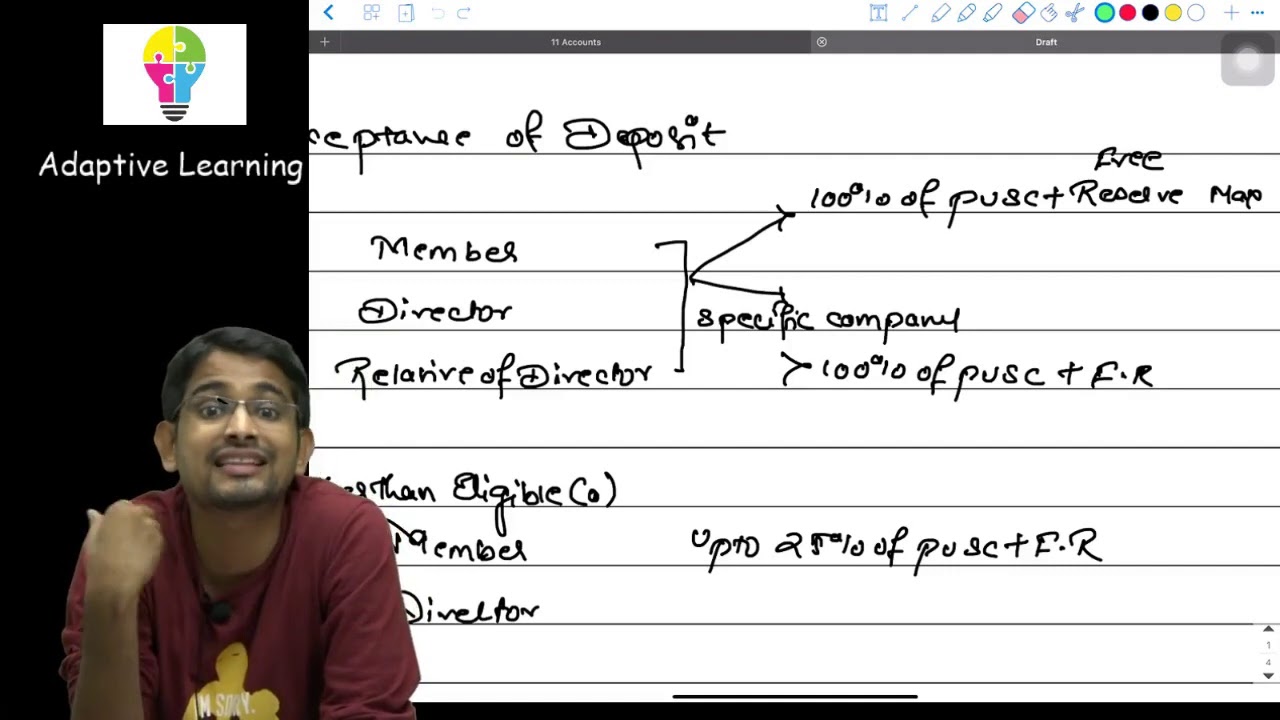 11 Accounts
Draft
Adaptive Learning
ceptance of Deposit
Free
100% of pusc + Reserve Map
Member
Director
specific company
Relative of Director
> 100% of pusc + F.R
than Eligible Co)
Member
upto 25% of pusc + F.R
Director
I'M SORRY.
1
4